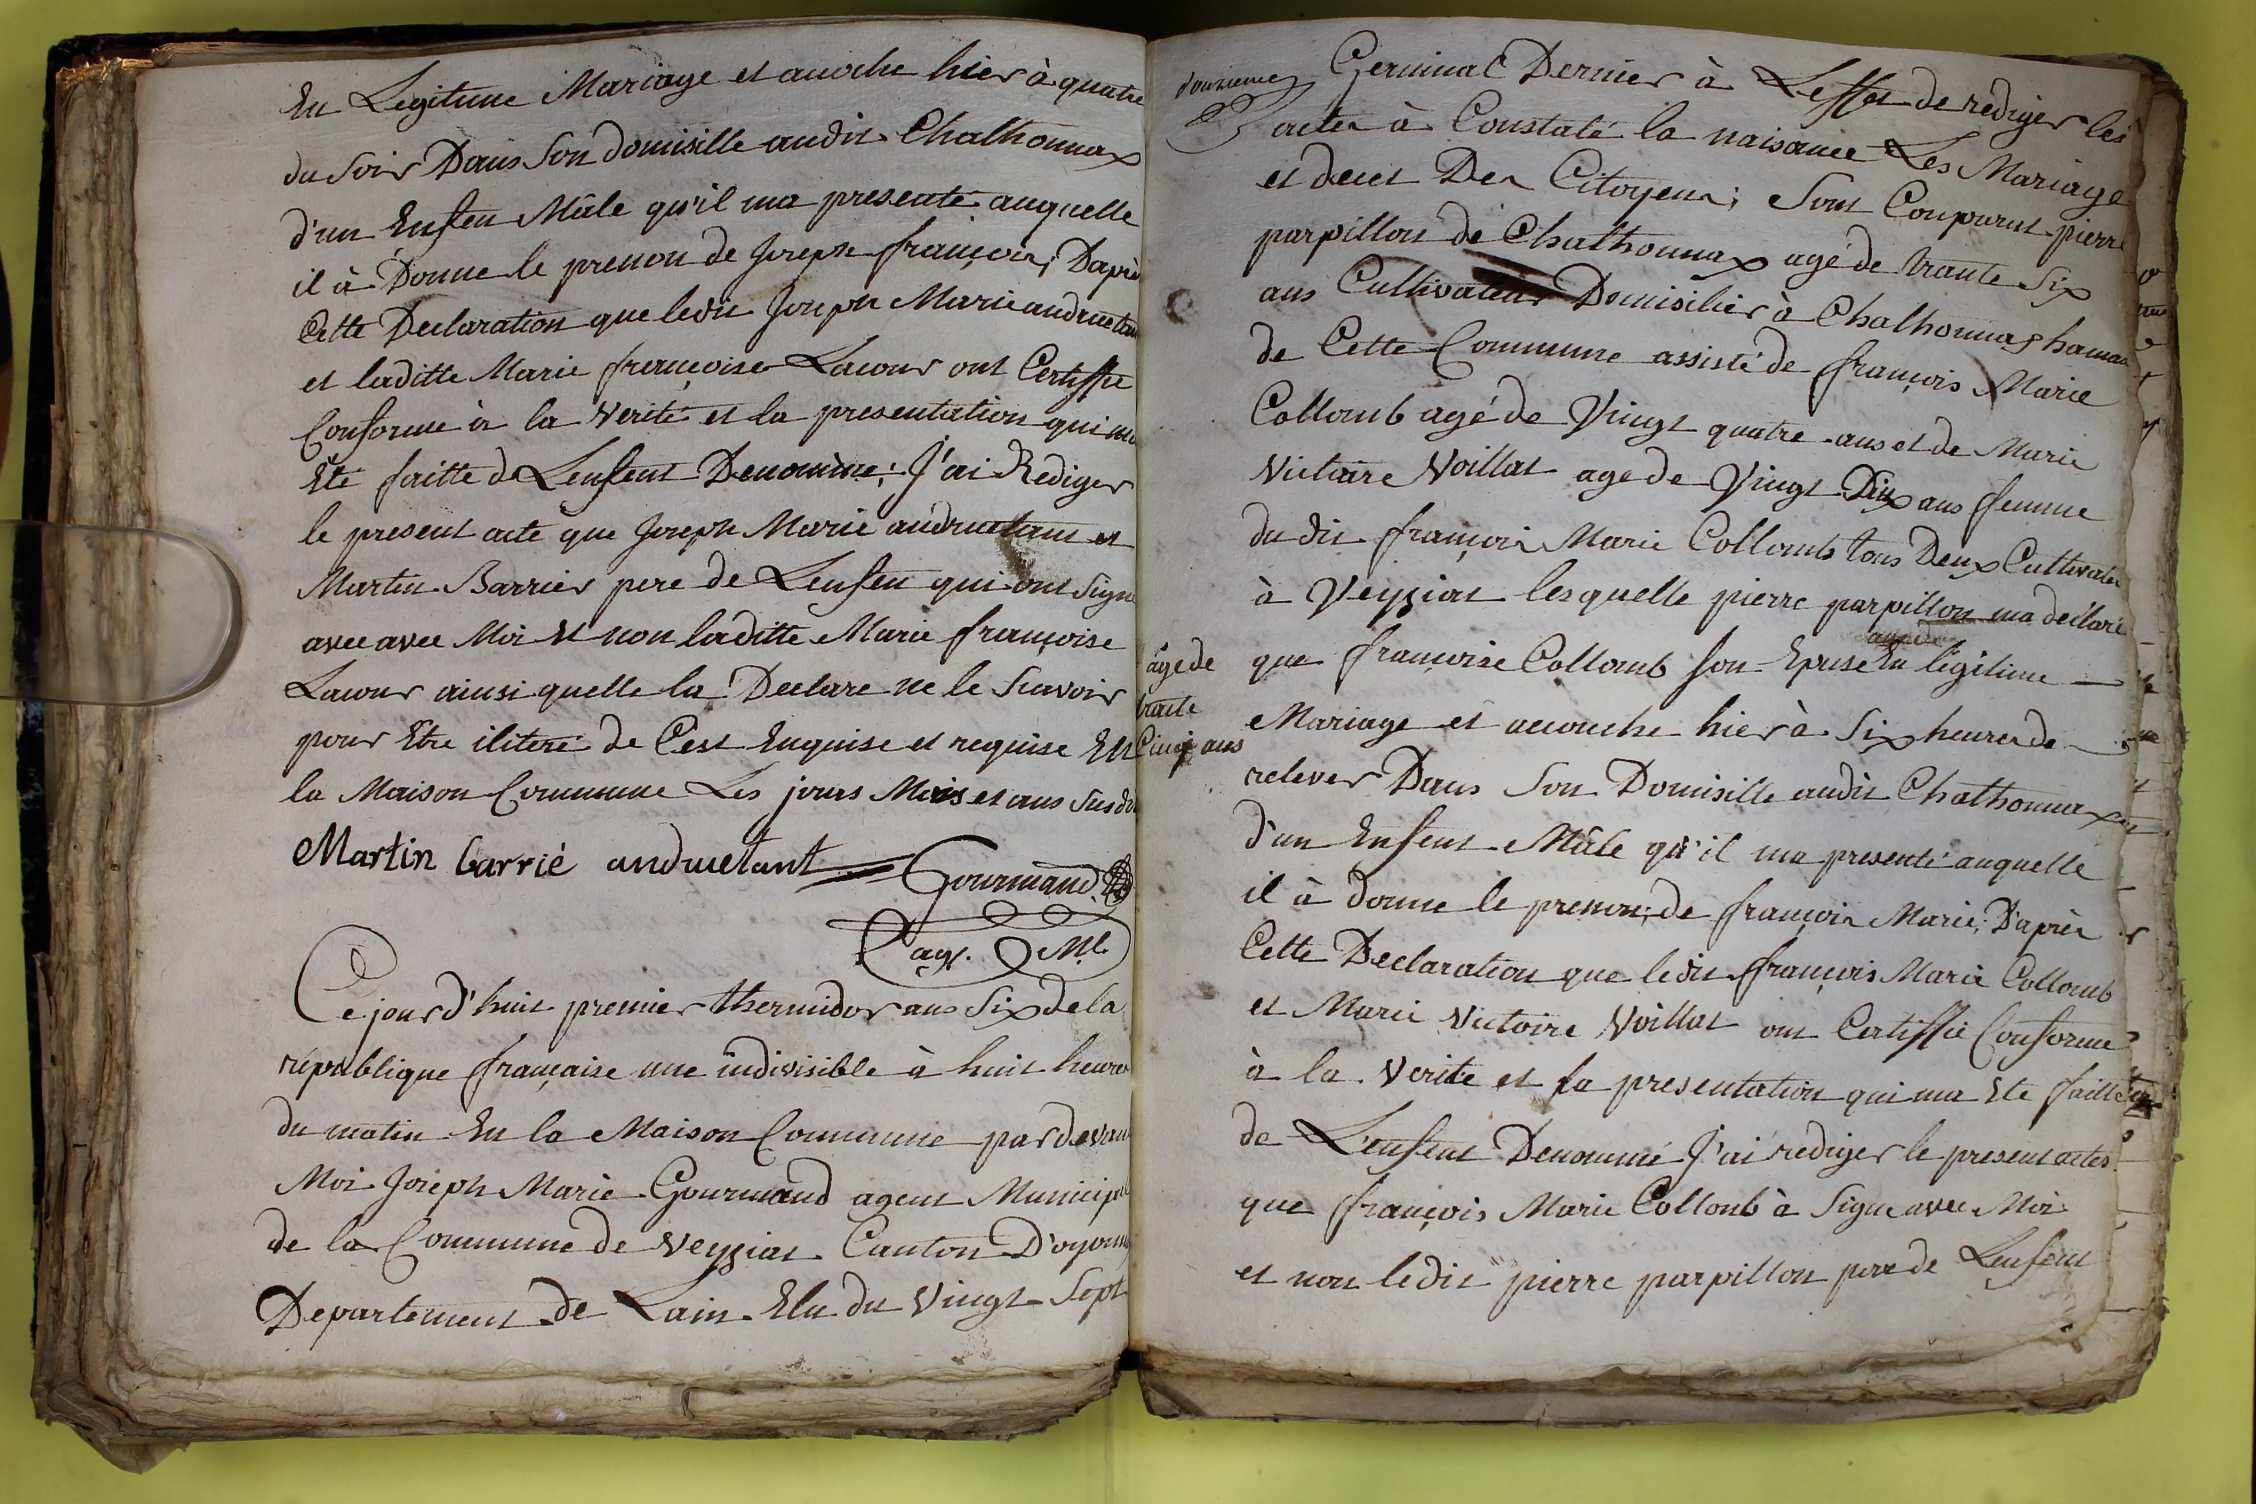 En Legitime Mariage et acuoche hier à quatre
du soir Dans son domisille audit Chalhonnax
d'un Enfen Mâle qu'il ma presenté auquelle
il à Donne le prenon de Joseph françois; Daprè
Cette Declaration que ledit Joseph Marie andruetan
et laditte Marie françoise Lacour ont Certiffie
Conforme à la Verité et la presentation qui ma
Eté faitte de Lenfent Denomme; J'ai Rediger
le present acte que Joseph Marie andruetant et
Martin Barrier pere de Lenfen qui ont Signe
avec avec Moi et non laditte Marie françoise
Lacour ainsi quelle la Declare ne le Scavoir
pour Etre ilitere de C'est Enquise et requise En
la Maison Commune Les jours Mois et ans Susdi
Martin barrié andruetant Gourmand
ag. Ml.
Ce jourd'huit premier thermidor ans Six de la
république française une indivisible à huit heures
du matin En la Maison Commune pardevan
Moi Joseph Marie Gourmand agent Municipal
de la Commune de Veyziat Canton D'oyonn
Departement de Lain Elu du Vingt Sept
Germinal Dernier à Leffet de rediger les
actes à Constaté la naisance Les Mariage
et deces Des Citoyens; Sont Conparut pierre
parpillon de Chalhonnax agé de trante Six
ans Cultivateur Domisilier à Chalhonnax hamau
de Cette Commune assisté de françois Marie
Collomb agé de Vingt quatre ans et de Marie
Victoire Voillat age de Vingt Dix ans femme
du dit françois Marie Collomb tous Deux Cultivate
à Veyziat lesquelle pierre parpillon ma déclaré
âge de
trante
Cinq ans
que françoise Collomb son Epuse En légitime
Mariage et acouche hier à Six heure de
relever Dans Son Domisille audit Chalhonnax
d'un Enfent Mâle qu'il ma presenté auquelle
il à donne le prenon; de françois Marie; D'après
Cette Declaration que ledit françois Marie Collomb
et Marie Victoire Voillat ont Certiffie Conforme
à la Verite et la presentation qui ma Eté faitte
de L'enfent Denommé J'ai rediger le present actes
que françois Marie Collonb à Signe avec Moi
et non ledit pierre parpillon pere de Lenfent